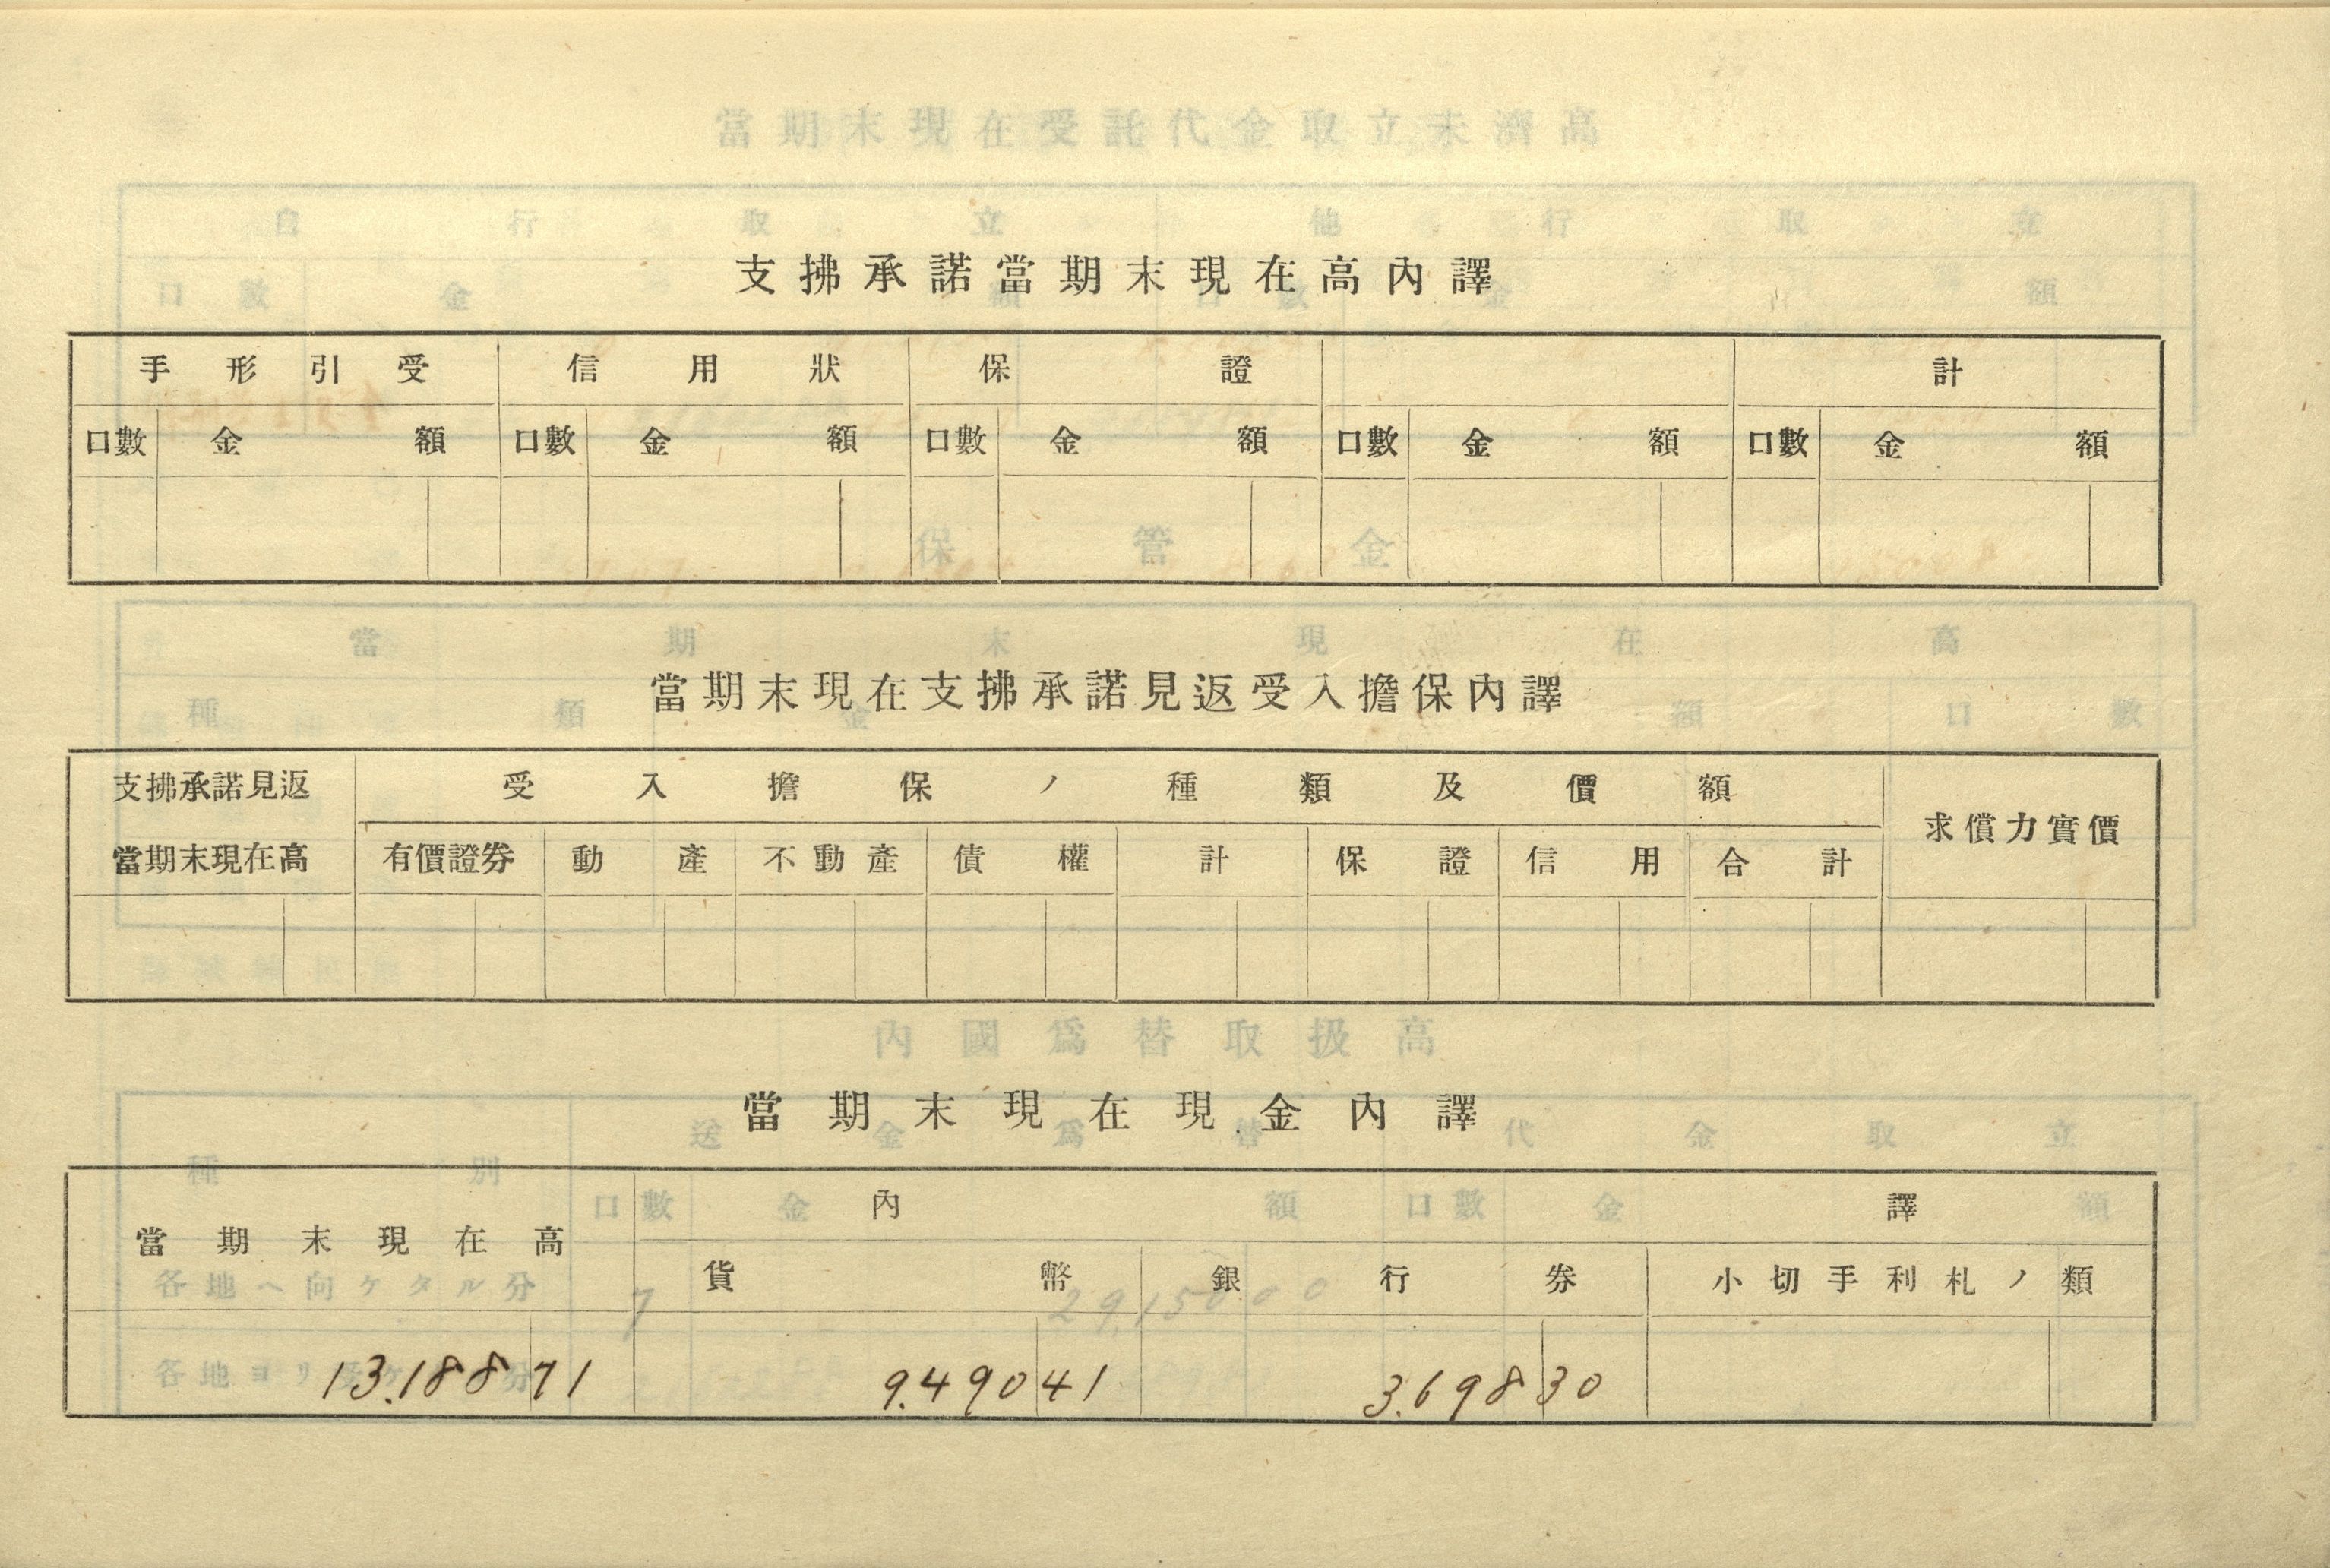 支拂承諾當期末現在高內譯
手形引受 信用狀 保證 計
口數 金額 口數 金額 口數 金額 口數 金額 口數 金額
當期末現在支拂承諾見返受入擔保內譯
支拂承諾見返 受入擔保ノ種類及價額 求償力實價
當期末現在高 有價證券 動產 不動產 債權 計 保證 信用 合計
當期末現在現金內譯
當期末現在高 內譯
貨幣 銀行券 小切手利札ノ類
13.188 71 9.490 41 3.698 30